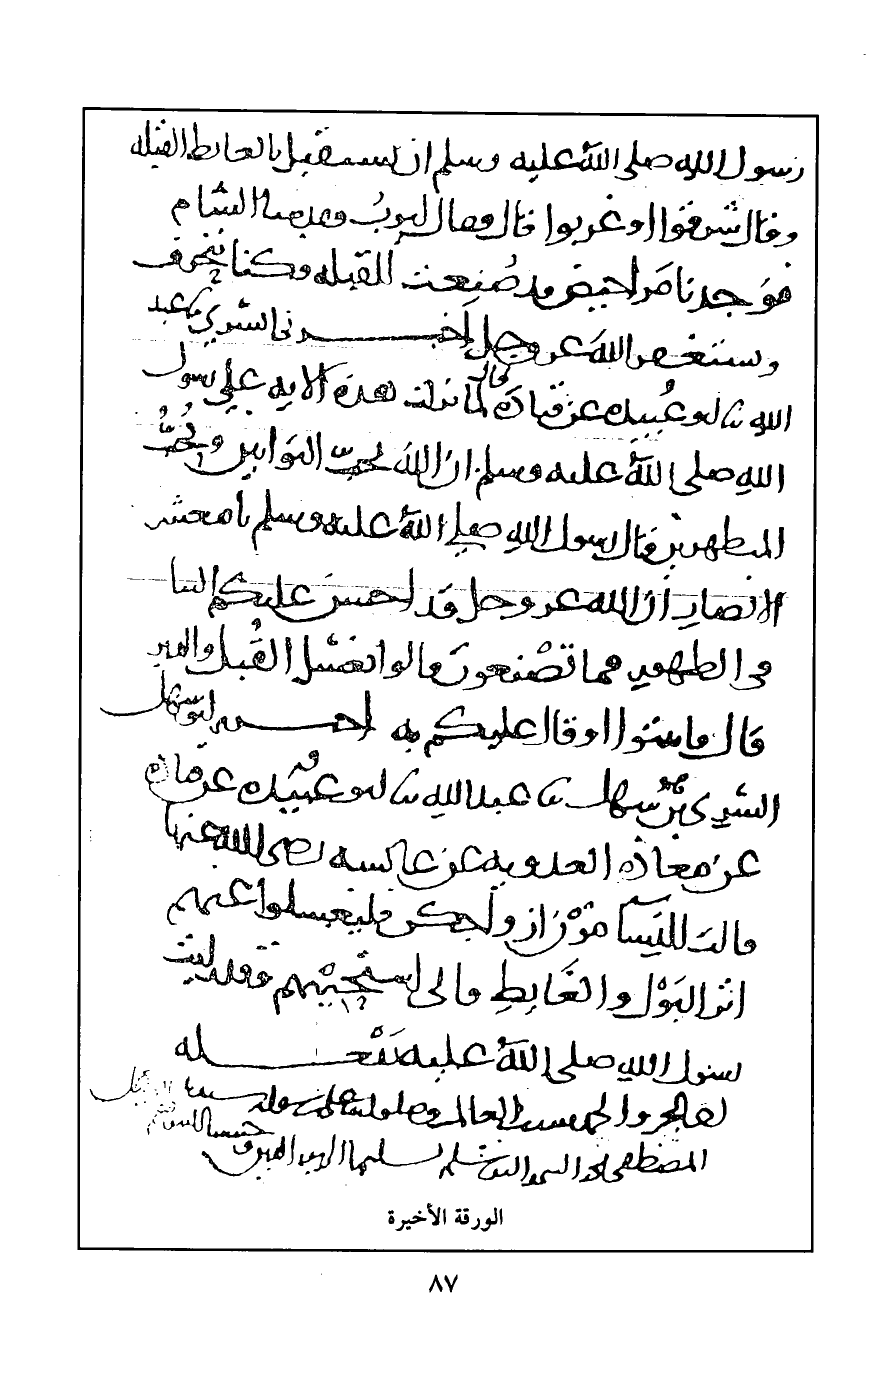 رسول الله صلى الله عليه وسلم ان نستقبل بالغايط القبله
وقال شرقوا او غربوا قال وقال ابو ايوب وقدمنا الشام
فوجدنا مراحيض قد صنعت للقبله وكنا ننحرف
ونستغفر الله عز وجل اخبرنا السري ثنا عبد
الله ثنا ابو عبيده عن قتاده قال لما نزلت هذه الايه على رسول
الله صلى الله عليه وسلم ان الله يحب التوابين ويحب
المتطهرين قال رسول الله صلى الله عليه وسلم يا معشر
الانصار ان الله عز وجل قد احسن عليكم الثنا
في الطهور فما تصنعون قالوا نغسل القبل والدبر
قال فاستنوا او قال عليكم به اخبرنا ابو سهل
السري بن سهل ثنا عبد الله ثنا ابو عبيده عن قتاده
عن معاذه العدويه عن عايشه رضي الله عنها
قالت للنسا مرن ازواجكن فليغسلوا عنهم
اثر البول والغايط فاني استحييهم وقد رايت
رسول الله صلى الله عليه يفعله
والحمد لله رب العالمين
المصطفى محمد تسليما
الورقة الأخيرة
٨٧